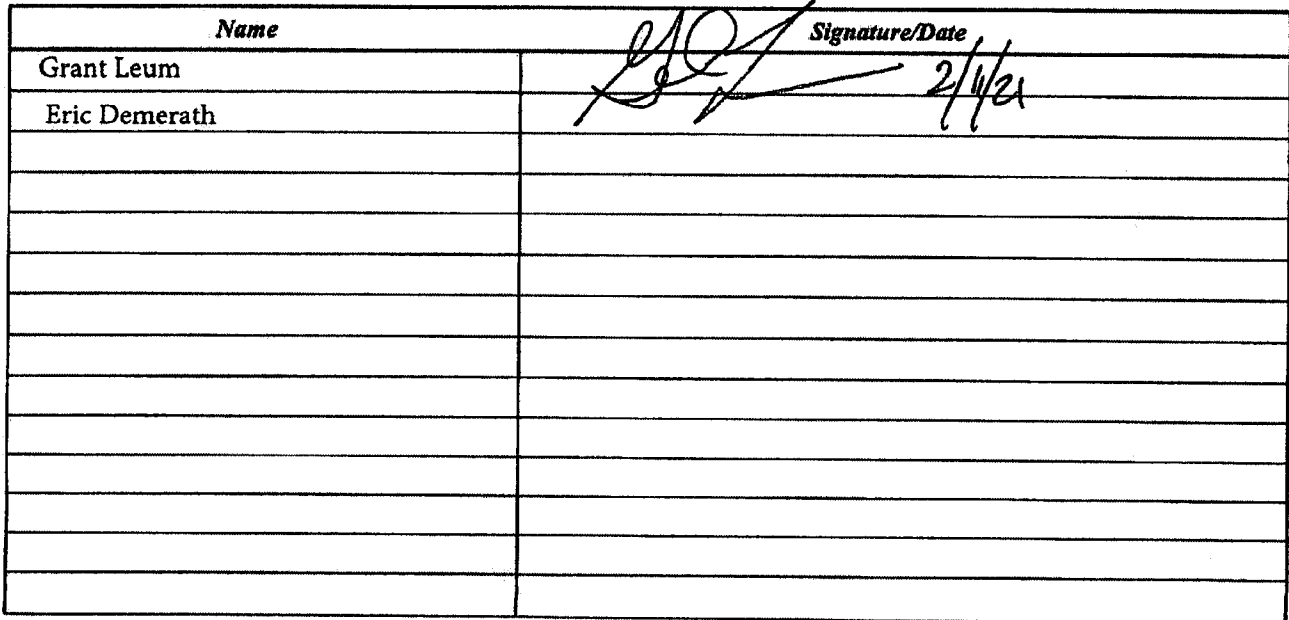 Name Signature/Date
Grant Leum 2/11/21
Eric Demerath